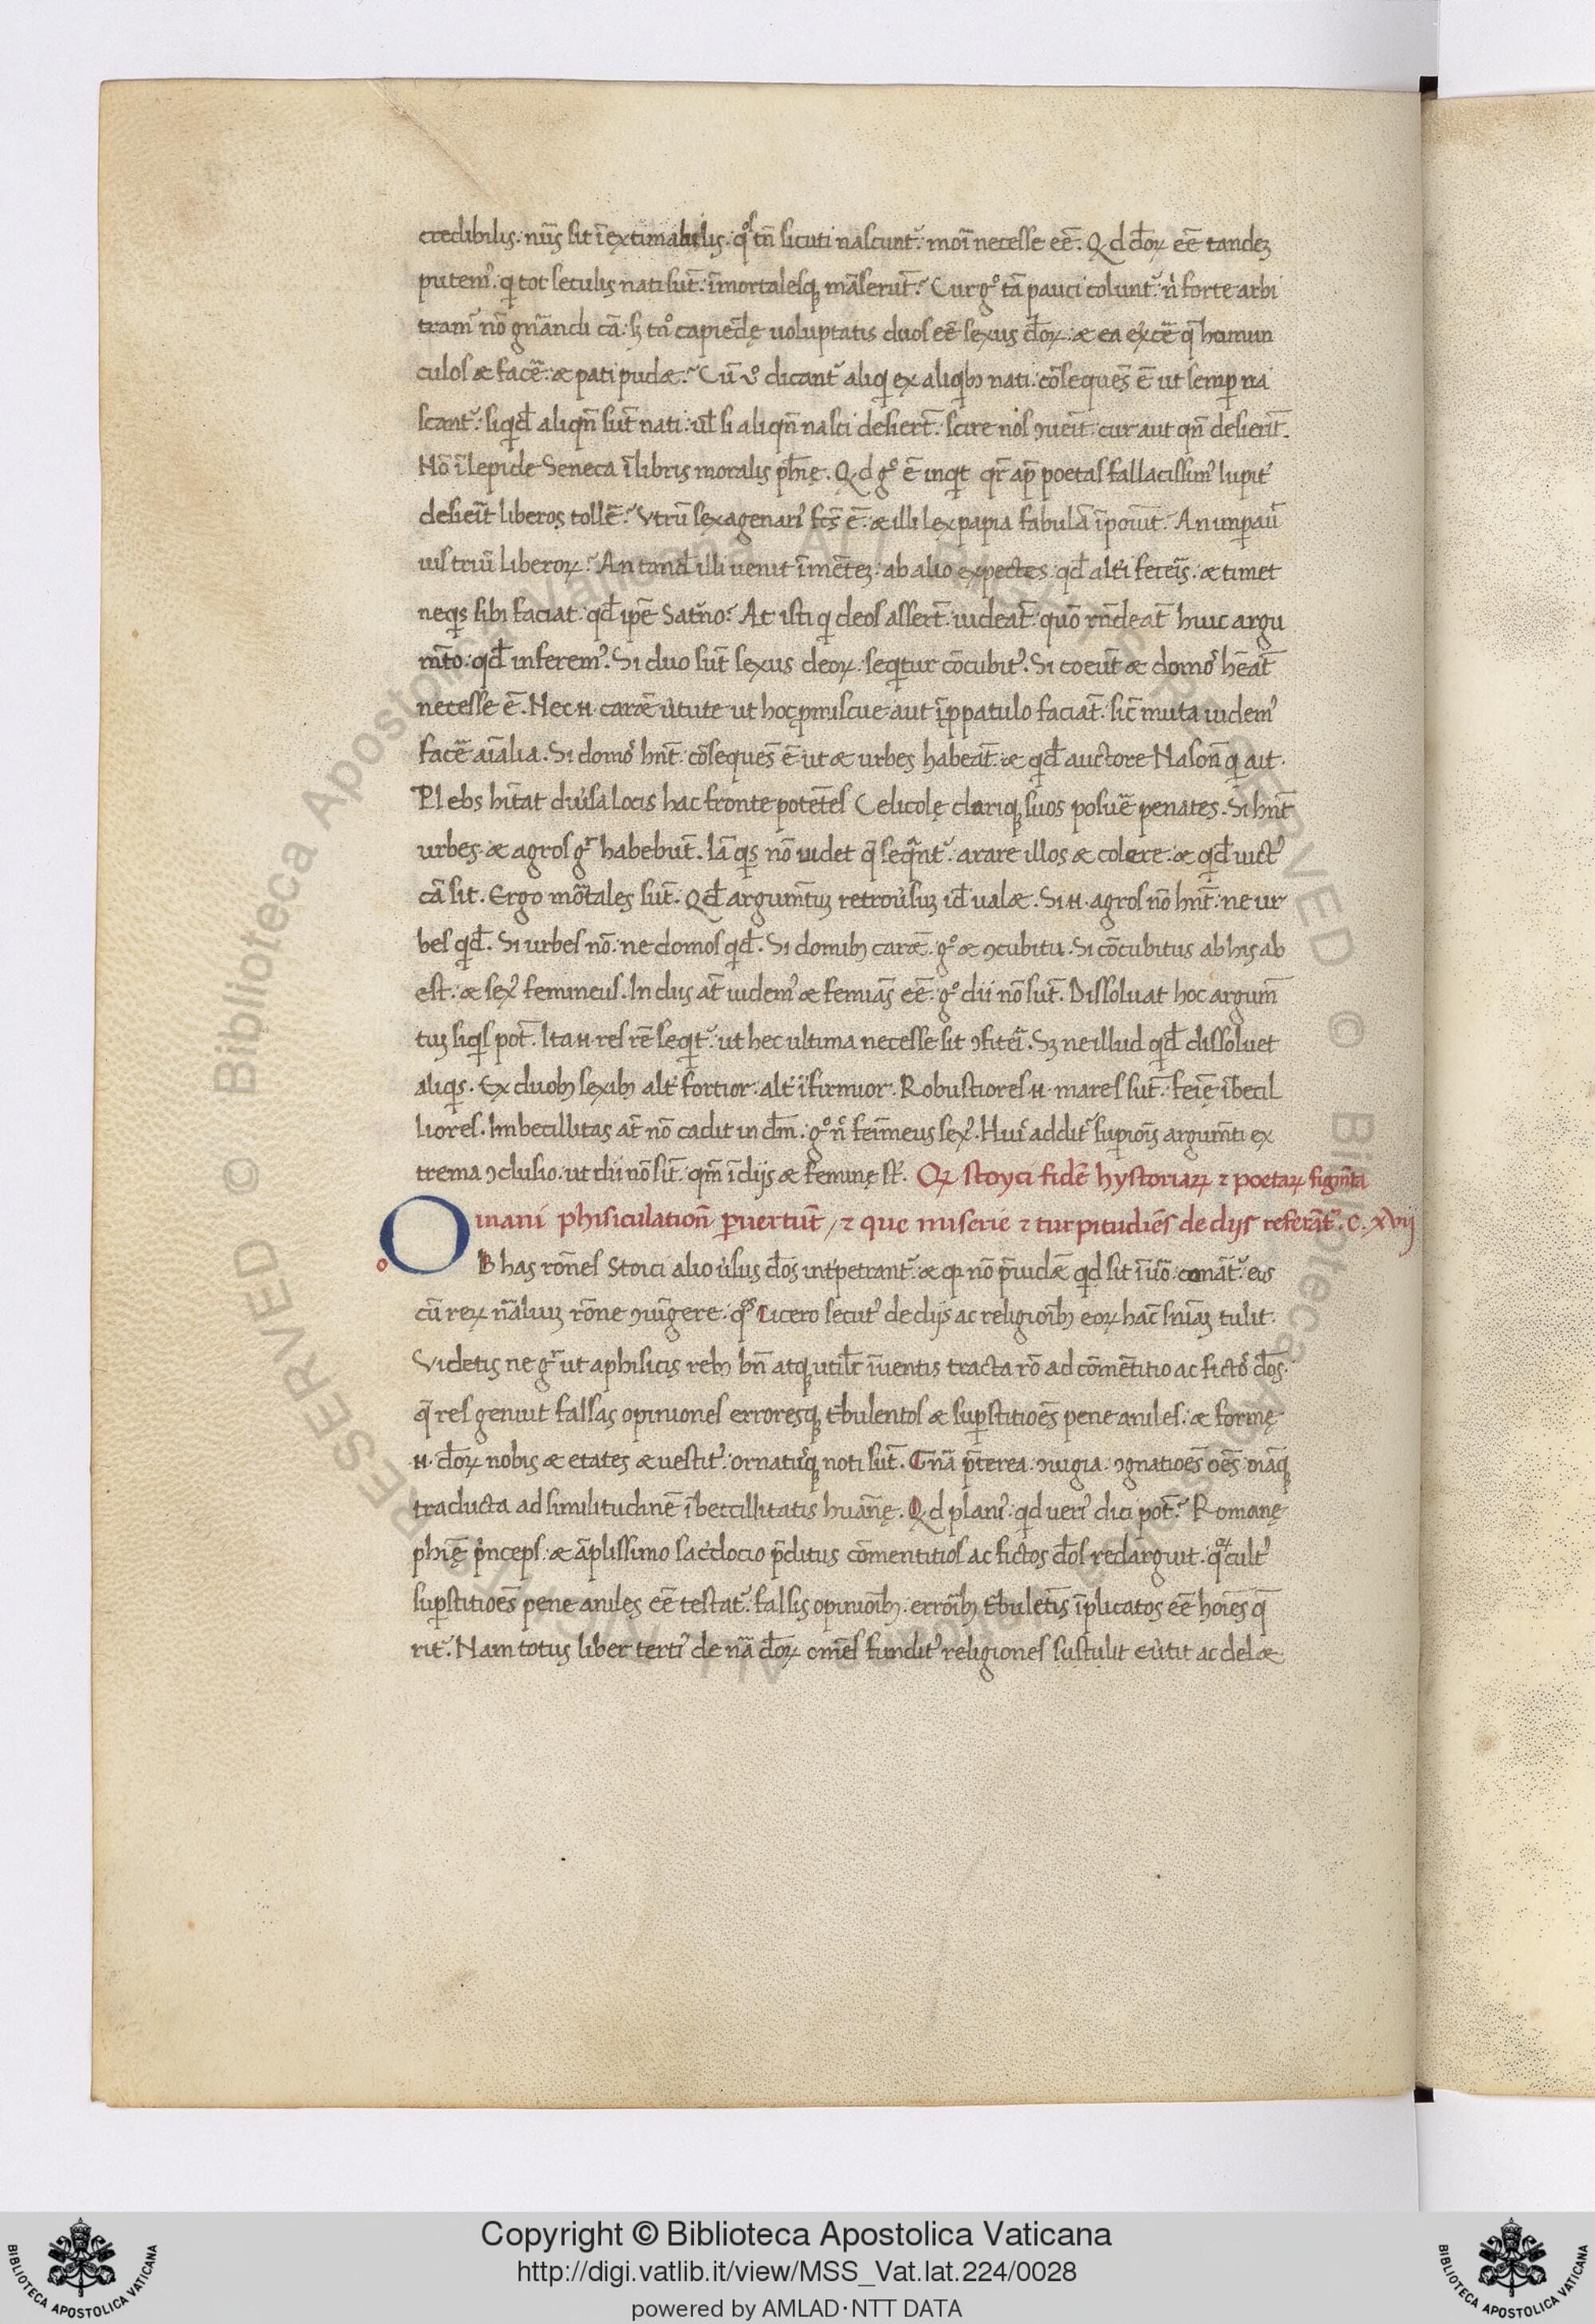 credibilis. nūs sit īextimabilis. qͦs tn̄ sicuti nascunt᷑. mori necesse eē. Qd d̄oꝝ eē tandeʒ
putemꝰ. qi tot seculis nati sūt. īmortalesqꝫ māserūt? Cur gͦ tā pauci colunt᷑. nͥ forte arbi
tramꝰ nō gn̄andi cā. sꝫ tm̄ capiēdę uoluptatis duos eē sexus d̄oꝝ. & ea exercē q̄ homun
culos & facē. & pati pudet? Cū vͦ dicant᷑ aliqi ex aliqibꝫ nati. cōsequēs ē ut semꝑ na
scant᷑. siqid̄ aliqn̄ sūt nati. ul̄ si aliqn̄ nasci desierūt. scire nos ꝯueīt. cur aut qn̄ desierīt.
Nō īlepide Seneca ī libris moralis ph̄ię. Qd gͦ ē inqit qr̄ ap̄ poetas fallacissimꝰ Iupitͥ
desieīt liberos tollē? Vtrū sexagenariꝰ fcs̄ ē. & illi lex papia fabulā īpoīut? An īmpau͞
uīs triū liberoꝝ? An tand̄ illi uenit ī mētēʒ. ab alio expectes. qd̄ altͥi feceīs. & timet
neqis sibi faciat. qd̄ ip̄e Satͧno? At isti qi deos asserūt. uideāt. quō rn̄deāt huic argu
mt̄o. qd̄ inferemꝰ. Si duo sūt sexus deoꝝ. seqitur cōcubitꝰ. Si coeūt & domoͥs hēāt
necesse ē. Nec ħ carēt ùtute ut hoc ꝓmiscue aut ī ꝓpatulo faciāt. sic̄ muta uidemꝰ
facē aīalia. Si domoͥs hn̄t. cōsequēs ē ut & urbes habeāt. & qid̄ auctore Nason̄ qi ait.
Plebs hītat diùsa locis hac fronte potētes Celicolę clariqꝫ suos posuē penates. Si hn̄t
urbes. & agros gͦ habebūt. Iā qis nō uidet q̄ seqūnt᷑. arare illos & colere. & qd̄ uictͥ
cā sit. Ergo mōtales sūt. Qd̄ argumn̄tuʒ retroùsuʒ id̄ ualet. Si ħ agros nō hn̄t. ne ur
bes qid̄. Si urbes nō. ne domos qid̄. Si domibꝫ carēt. gͦ & ꝯcubitu. Si cōcubitus ab his ab
est. & sexꝰ femineus. In diis at̄ uidemꝰ & femīas eē. gͦ dii nō sūt. Dissoluat hoc argum̄
tuʒ siqis pōt. Ita ħ res rē seqit᷑. ut hec ultima necesse sit ꝯfiteri. Sꝫ ne illud qid̄ dissoluet
aliqis. Ex duobꝫ sexibꝫ altͥ fortior. altͥ īfirmior. Robustiores ħ mares sūt. feīę ībecil
liores. Imbecillitas at̄ nō cadit in dm̄. gͦ nͨ feīmeus sexꝰ. Huic addit᷑ suꝑioīs argumn̄ti ex
trema ꝯclusio. ut dii nō sīt. qm̄ ī dijs & feminę sūt. Qꝝ stoyci fidē hystoriaꝝ ⁊ poetaꝝ figmn̄ta
inani phisiculatiōn ꝑuertūt / ⁊ que miserie ⁊ turpitudiēs de dijs referāt᷑. c. xvij
OB has rōnes Stoici alioùsus d̄os int᷑petrant᷑. & qꝛ nō ꝑuidēt qid sit ī uͦo. conāt᷑ eos
cū reꝝ nāliuʒ rōne ꝯiūgere. qͦs Cicero secutꝰ de dijs ac religioībꝫ eoꝝ hāc sn̄iaʒ tulit.
Videtis ne gͦ ut a phisicis rebꝫ bn̄ atqꝫ utilͥr īuentis tracta rō ad cōmētitios ac fictos d̄os.
q̄ res genuit falsas opiniones erroresqꝫ tͧbulentos & suꝑstitioēs pene aniles. & formę
ħ d̄oꝝ nobis & etates & uestitꝰ. ornatusqꝫ noti sūt. Gn̄a p̄terea. ꝯiugia. ꝯgnatioēs oēs. oiāqꝫ
traducta ad similitudinē ībecillitatis huānę. Qd planiꝰ. qd ueriꝰ dici pōt? Romanę
phię pͥnceps. & āplissimo sac̄docio p̄ditus cōmentitios ac fictos d̄os redarguit. qͦꝝ cultꝰ
suꝑstitioēs pene aniles eē testat᷑. falsis opinioībꝫ. erroībꝫ tͧbulētis īplicatos eē hoīes q̄
rit᷑. Nam totus liber tertiꝰ de nā d̄oꝝ omēs funditꝰ religiones sustulit eùtit ac delet